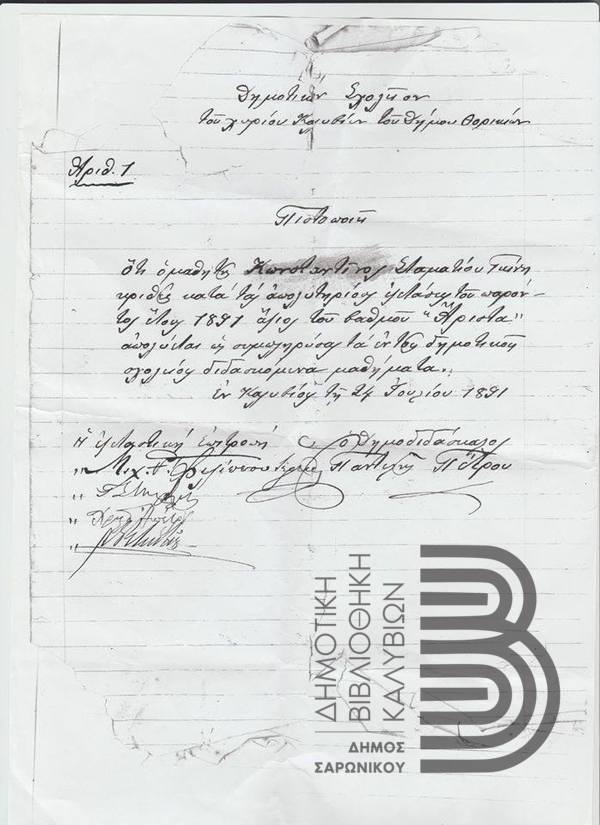 Δημοτικόν Σχολεῖον
τοῦ χωρίου Καλυβίων τοῦ Δήμου Θορικίων
Ἀριθ. 1
Πιστοποιεῖ
ὅτι ὁ μαθητὴς Κωνσταντῖνος Σταματίου Γκίνη
κριθεὶς κατὰ τὰς ἀπολυτηρίους ἐξετάσεις τοῦ παρόν-
τος ἔτους 1891 ἄξιος τοῦ βαθμοῦ "Ἄριστα"
ἀπολύεται ὡς συμπληρώσας τὰ ἐν τοῖς δημοτικοῖς
σχολείοις διδασκόμενα μαθήματα.
ἐν Καλυβίοις τῇ 24 Ἰουλίου 1891
Ἡ ἐξεταστικὴ ἐπιτροπὴ
Ὁ δημοδιδάσκαλος
Παντελῆς Πέτρου
ΔΗΜΟΤΙΚΗ
ΒΙΒΛΙΟΘΗΚΗ
ΚΑΛΥΒΙΩΝ
ΔΗΜΟΣ
ΣΑΡΩΝΙΚΟΥ